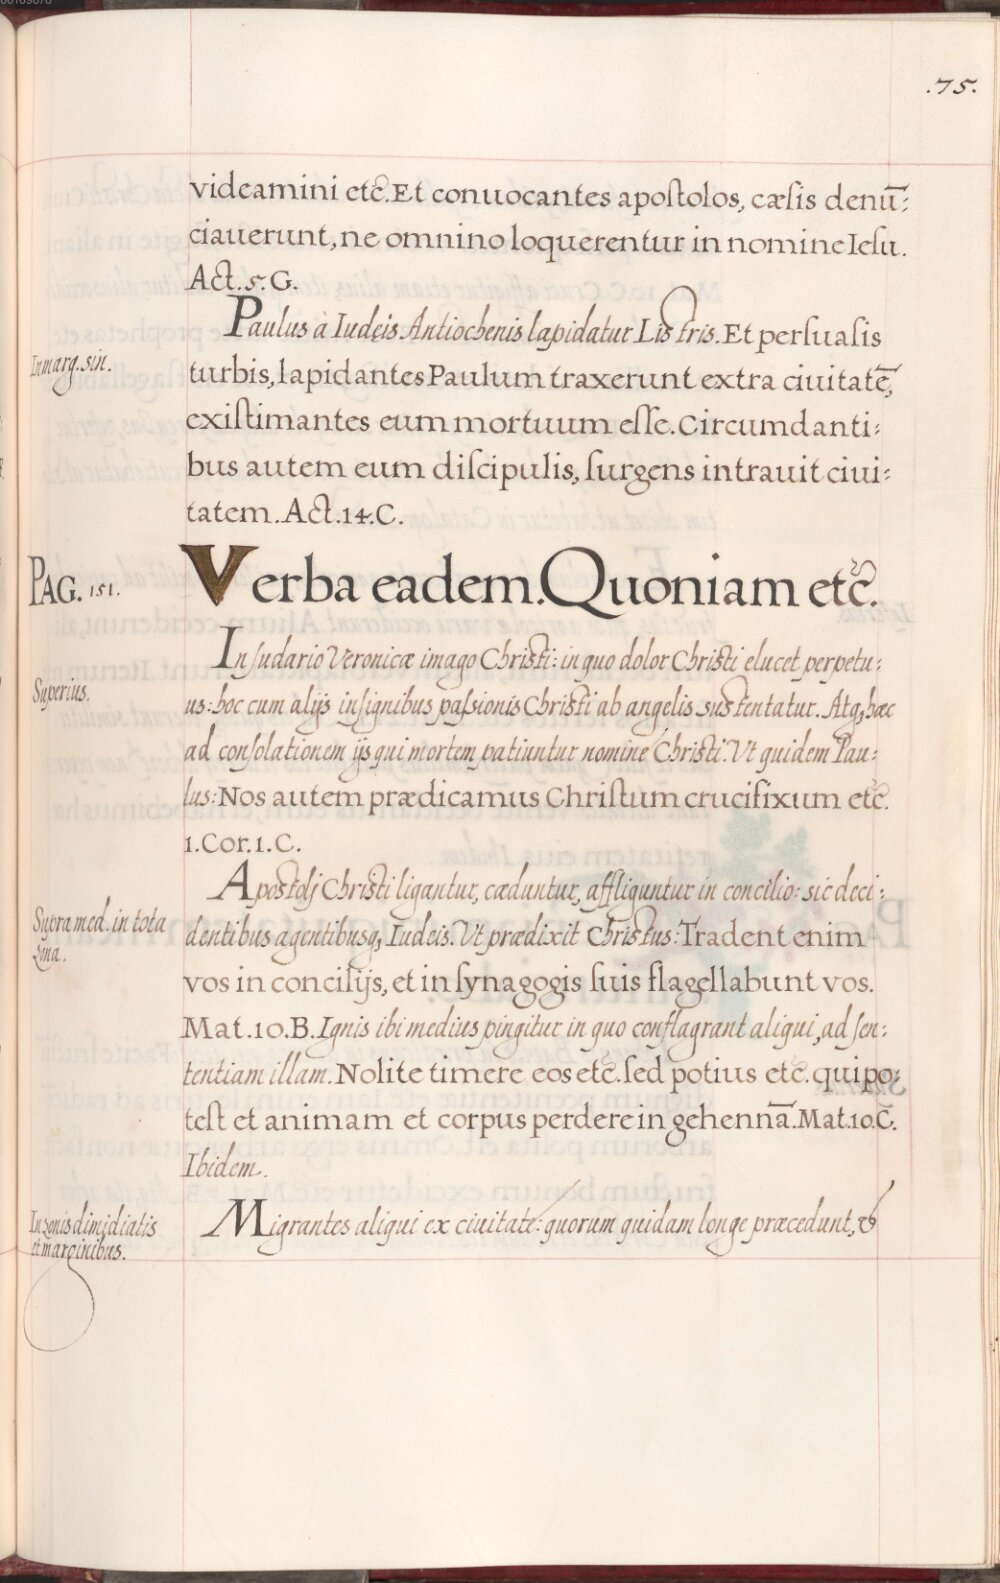 .75.
videamini etc̃. Et conuocantes apoſtolos, cæſis denū:
ciauerunt, ne omnino loquerentur in nomine Ieſu.
Act. 5. G.
Paulus à Iudeis Antiochenis lapidatur Listris. Et perſuaſis
In marg. sin.
turbis, lapidantes Paulum traxerunt extra ciuitatē,
exiſtimantes eum mortuum eſſe. Circumdanti:
bus autem eum diſcipulis, ſurgens intrauit ciui:
tatem. Act. 14. C.
PAG. 151.
Verba eadem. Quoniam etc̃.
In ſudario Veronicæ imago Christi: in quo dolor Christi elucet perpetu:
Superius.
us: hoc cum alijs inſignibus paſsionis Christi ab angelis sustentatur. Atq; hæc
ad conſolationem ijs qui mortem patiuntur nomine Christi. Vt quidem Pau:
lus: Nos autem prædicamus Chriſtum crucifixum etc̃.
1. Cor. 1. C.
Apostolj Christi ligantur, cæduntur, affliguntur in concilio: sic deci:
Supra med. in tota
zona.
dentibus agentibusq; Iudeis. Vt prædixit Christus: Tradent enim
vos in concilijs, et in ſynagogis ſuis flagellabunt vos.
Mat. 10. B. Ignis ibi medius pingitur in quo conflagrant aliqui, ad ſen:
tentiam illam. Nolite timere eos etc̃. ſed potius etc̃. qui po:
teſt et animam et corpus perdere in gehennā. Mat. 10. C.
Ibidem.
In zonis dimidiatis
et marginibus.
Migrantes aliqui ex ciuitate: quorum quidam longe præcedunt, &